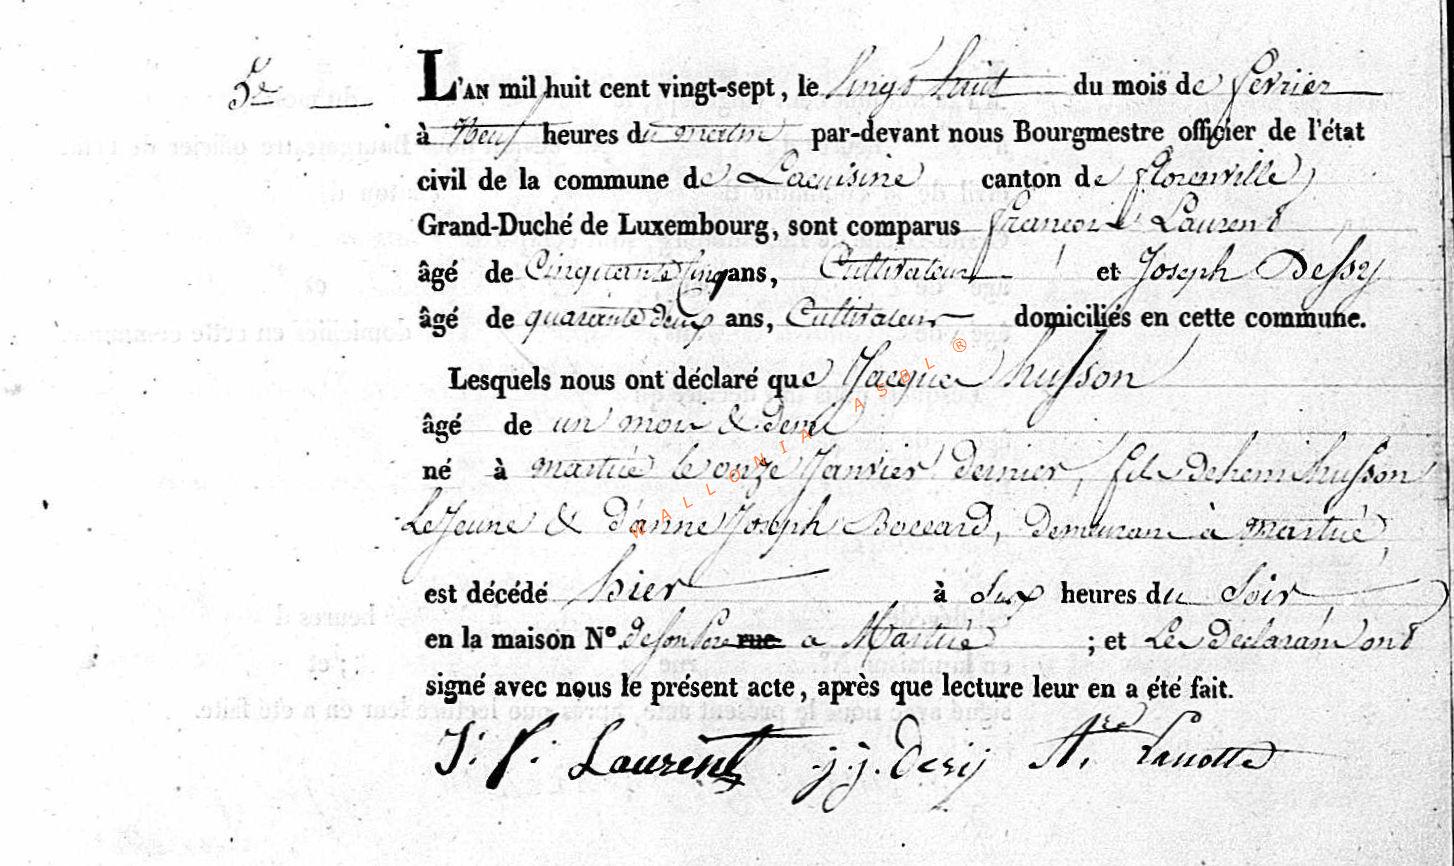 5e
L'AN mil huit cent vingt-sept, le vingt huit du mois de février
à neuf heures du matin par-devant nous Bourgmestre officier de l'état
civil de la commune de Lacuisine canton de florenville,
Grand-Duché de Luxembourg, sont comparus françois Laurent
âgé de Cinquante Cinq ans, Cultivateur et Joseph Dessy
âgé de quarante deux ans, Cultivateur domiciliés en cette commune.
Lesquels nous ont déclaré que Jacque husson
âgé de un mois & demi
né à martué le onze Janvier dernier, fils de henri husson
Le Jeune & d'anne Joseph Boccard, demeurant à martué,
est décédé hier à deux heures du Soir
en la maison N° de son pere rue a Martué ; et Les déclarans ont
signé avec nous le présent acte, après que lecture leur en a été fait.
J: f. Laurent j.j. Desij Lanotte
WALLONIA ASBL ®